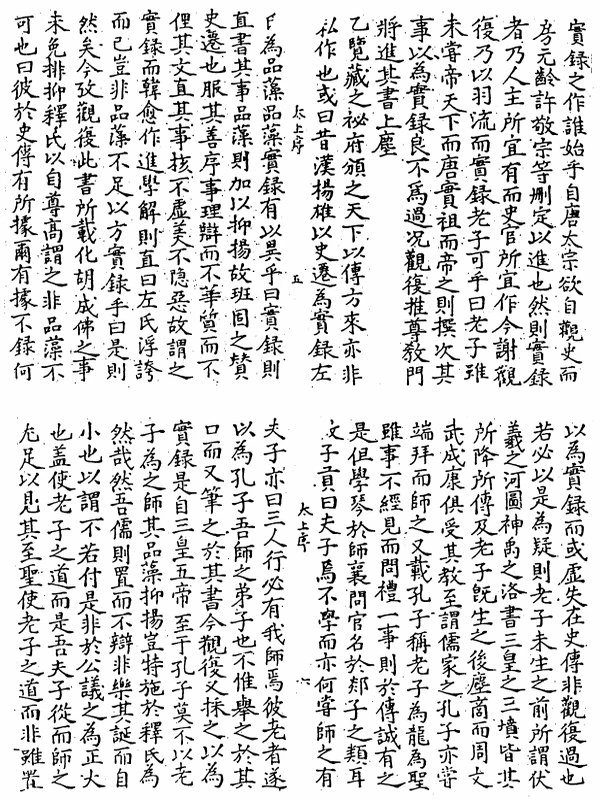 實録之作誰始乎自唐太宗欲自觀史而
房元齡許敬宗等刪定以進也然則實録
者乃人主所宜有而史官所宜作今謝觀
復乃以羽流而實録老子可乎曰老子雖
未嘗帝天下而唐實祖而帝之則撰次其
事以為實録良不爲過况觀復推尊敎門
將進其書上塵
乙覽藏之秘府頒之天下以傳方來亦非
私作也或曰昔漢揚雄以史遷為實録左
太上序
五
氏為品藻品藻實録有以異乎曰實録則
直書其事品藻則加以抑揚故班固之賛
史遷也服其善序事理辯而不華質而不
俚其文直其事核不虛美不隠惡故謂之
實録而韓愈作進學解則直曰左氏浮誇
而已豈非品藻不足以方實録乎曰是則
然矣今攷觀復此書所載化胡成佛之事
未免排抑釋氏以自尊髙謂之非品藻不
可也曰彼於史傳有所據爾有據不録何
以為實録而或虛失在史傳非觀復過也
若必以是為疑則老子未生之前所謂伏
羲之河圖神禹之洛書三皇之三墳皆其
所降所傳及老子旣生之後歷商而周文
武成康俱受其教至謂儒家之孔子亦嘗
端拜而師之又載孔子稱老子為龍為聖
雖事不經見而問禮一事則於傳誠有之
是但學琴於師襄問官名於郯子之類耳
文子貢曰夫子焉不學而亦何嘗師之有
太上序
六
夫子亦曰三人行必有我師焉彼老者遂
以為孔子吾師之弟子也不惟舉之於其
口而又筆之於其書今觀復又採之以為
實録是自三皇五帝至于孔子莫不以老
子為之師其品藻抑揚豈特施於釋氏為
然哉然吾儒則置而不辯非樂其誕而自
小也以謂不若付是非於公議之為正大
也盖使老子之道而是吾夫子從而師之
尤足以見其至聖使老子之道而非雖置